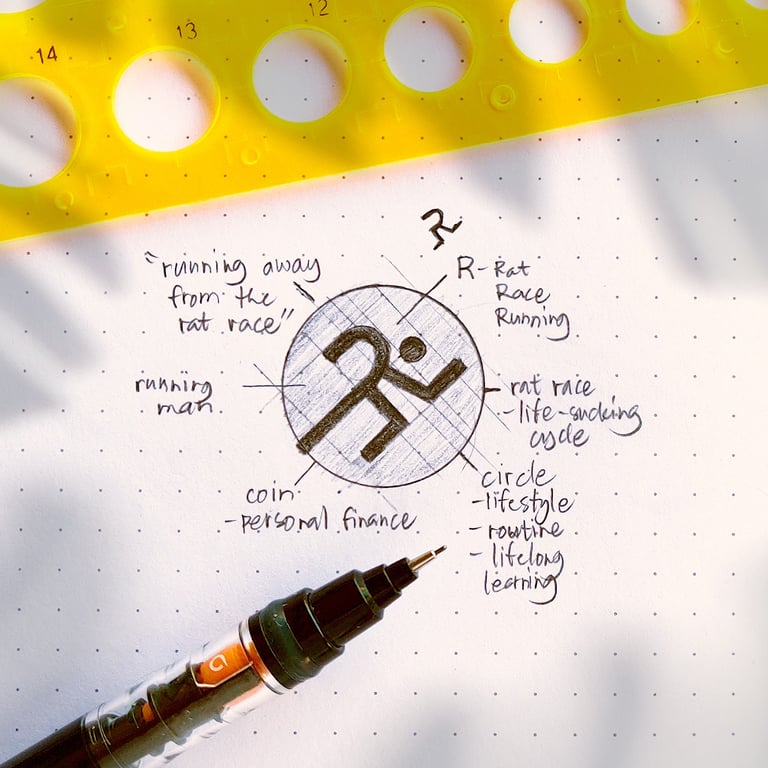 14
13
12
R
"running away
from the
rat race"
R-Rat
Race
Running
running
man
rat race
-life-sucking
cycle
coin
-personal finance
circle
-lifestyle
-routine
- lifelong
learning
G